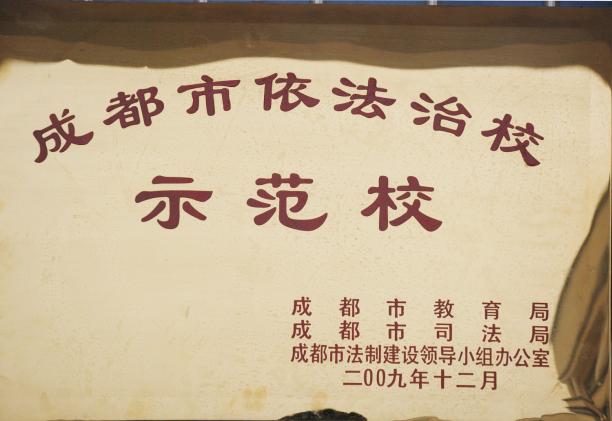 成都市依法治校
示范校
成都市教育局
成都市司法局
成都市法制建设领导小组办公室
二00九年十二月